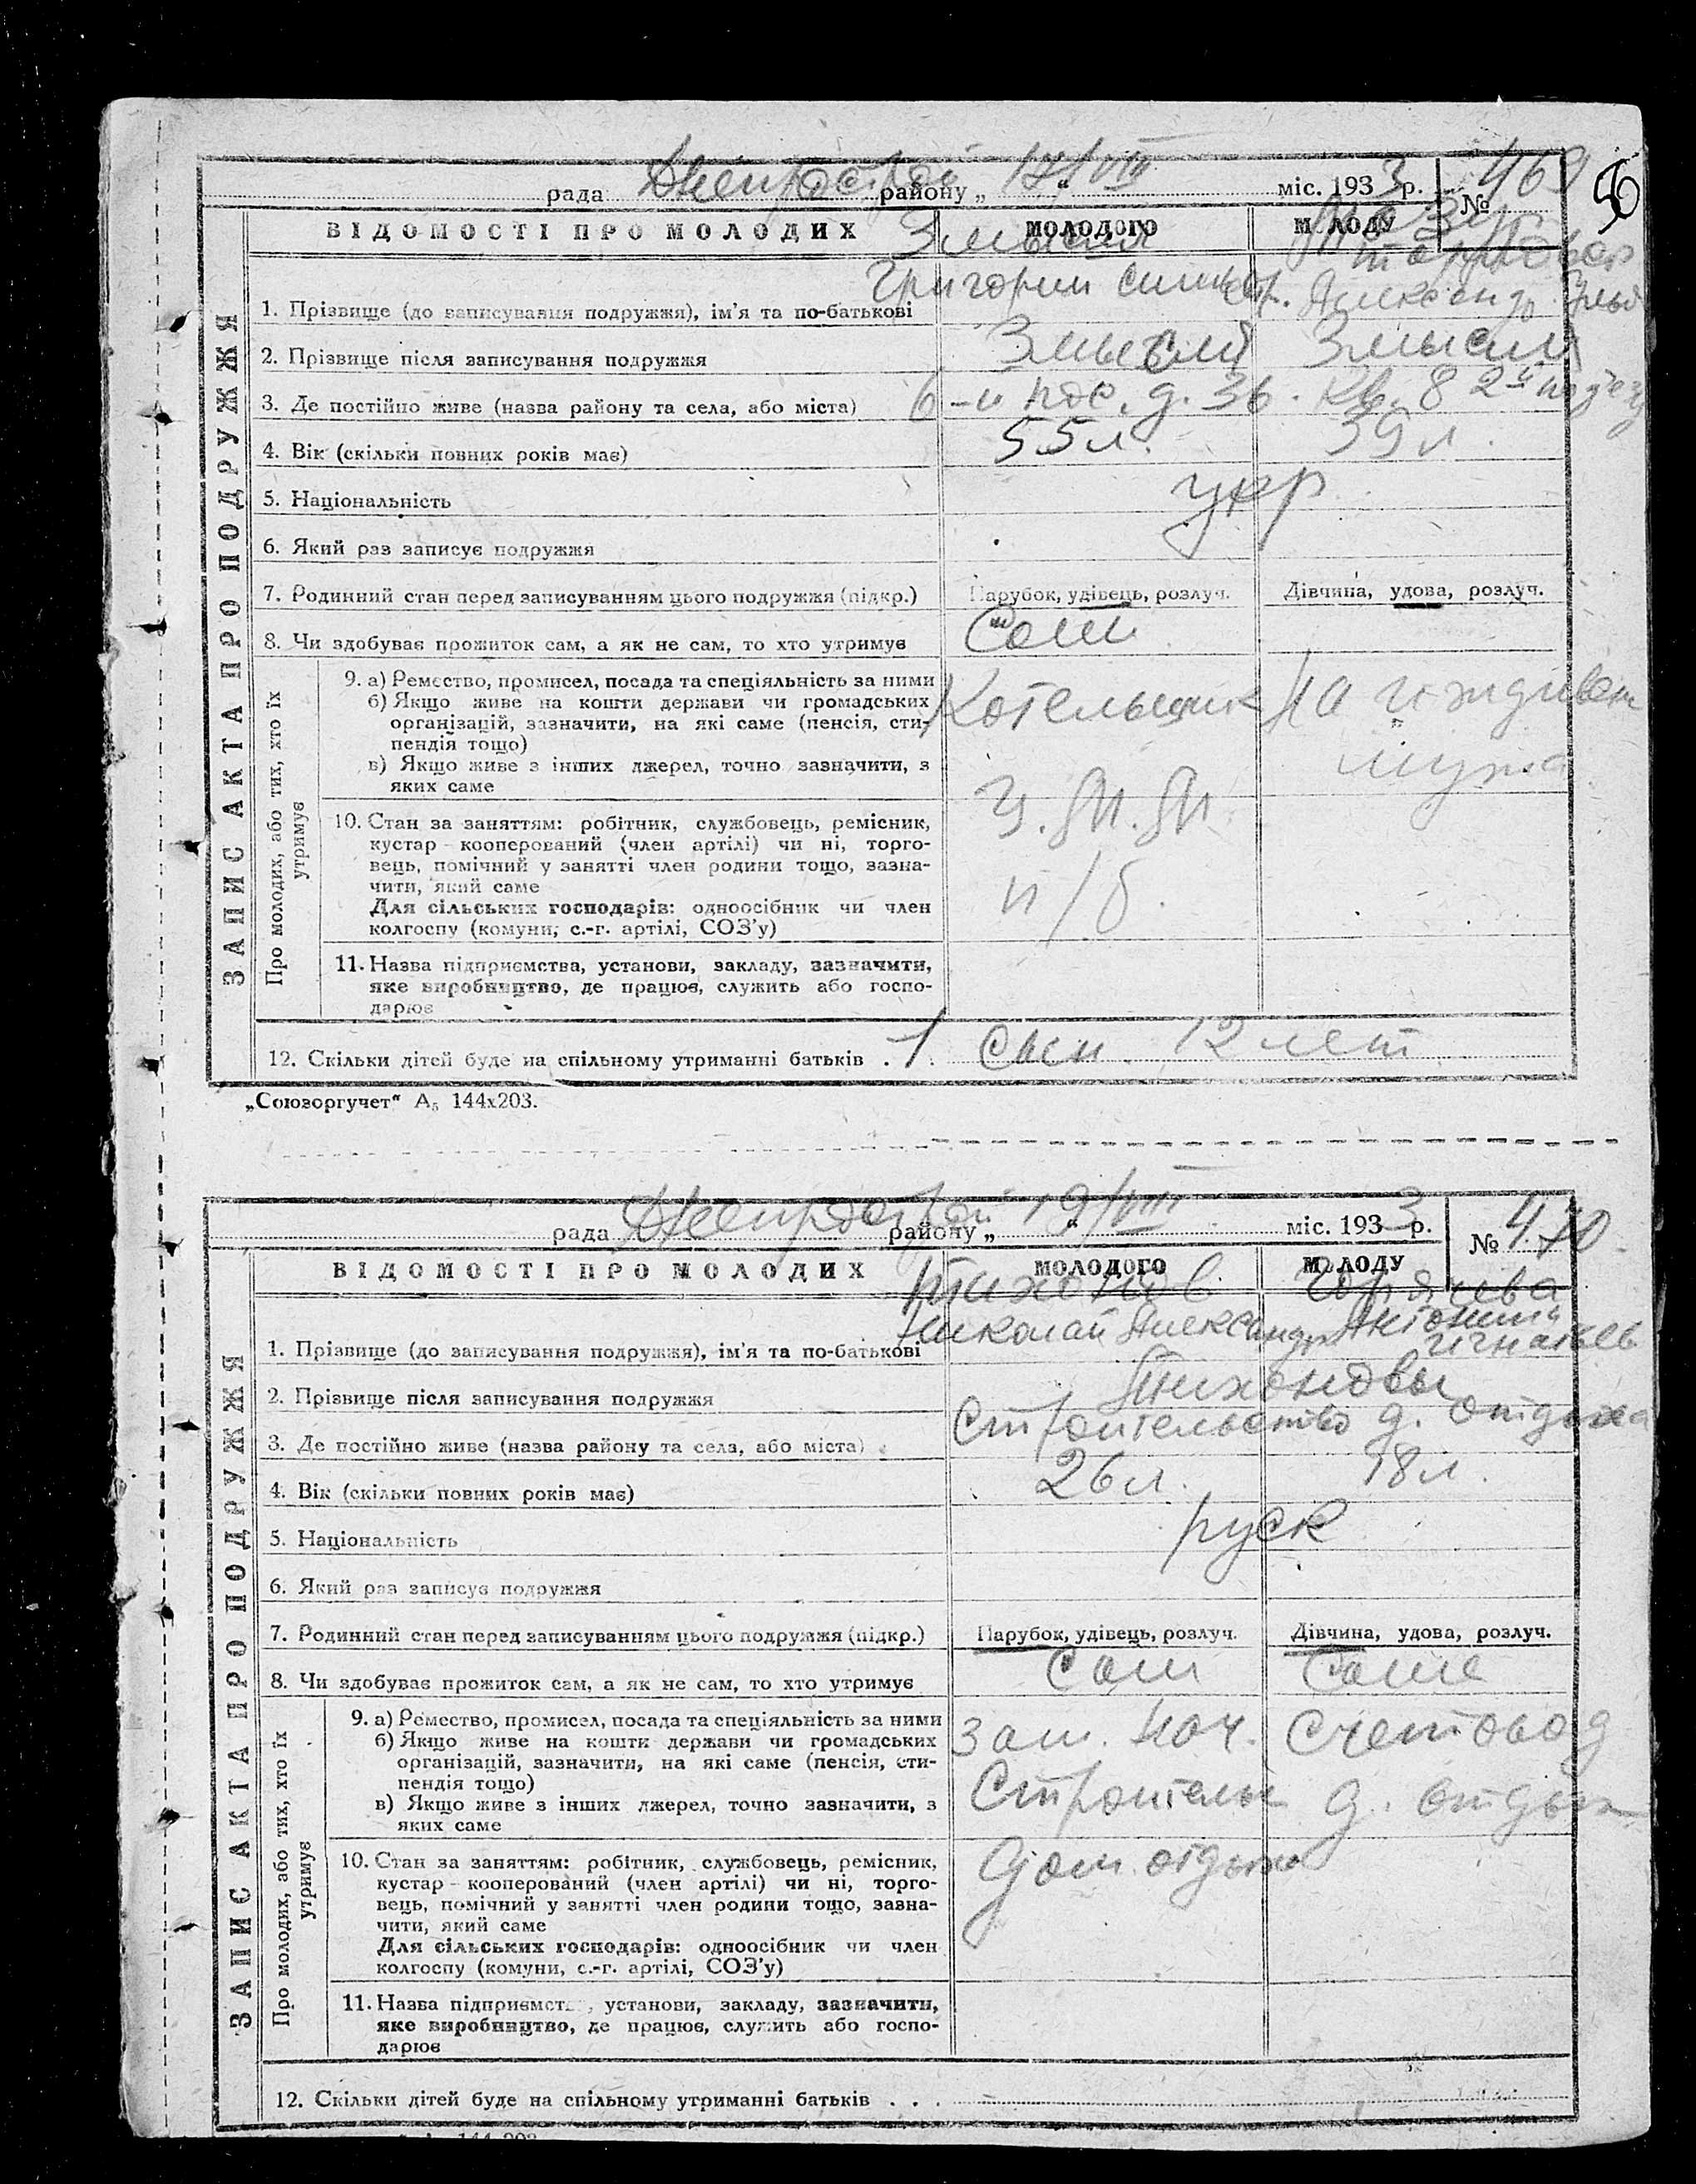 56
рада Днепрострой району „ 17/VIII “ міс. 1933 р. № 469
ВІДОМОСТІ ПРО МОЛОДИХ МОЛОДОГО МОЛОДУ
ЗАПИС АКТА ПРО ПОДРУЖЖЯ
Григорий
1. Прізвище (до записування подружжя), ім'я та по-батькові
2. Прізвище після записування подружжя
3. Де постійно живе (назва району та села, або міста) 6-й пос. д. 36. кв. 8 2й подъезд
4. Вік (скільки повних років має) 55 л. 39 л.
5. Національність укр
6. Який раз записує подружжя
7. Родинний стан перед записуванням цього подружжя (підкр.) Парубок, удівець, розлуч. Дівчина, удова, розлуч.
8. Чи здобуває прожиток сам, а як не сам, то хто утримує Сам
Про молодих, або тих, хто їх утримує
9. а) Ремество, промисел, посада та спеціяльність за ними Котельщик На иждивен
б) Якщо живе на кошти держави чи громадських
організацій, зазначити, на які саме (пенсія, сти-
пендія тощо) мужа
в) Якщо живе з інших джерел, точно зазначити, з
яких саме
10. Стан за заняттям: робітник, службовець, ремісник,
кустар - кооперований (член артілі) чи ні, торго-
вець, помічний у занятті член родини тощо, зазна-
чити, який саме п/б.
Для сільських господарів: одноосібник чи член
колгоспу (комуни, с.-г. артілі, СОЗ'у)
11. Назва підприємства, установи, закладу, зазначити,
яке виробництво, де працює, служить або госпо-
дарює
12. Скільки дітей буде на спільному утриманні батьків . 1. сын 12 лет
„Союзоргучет“ А5 144х203.
рада Днепрострой району „ 19/VIII “ міс. 1933 р. № 470.
ВІДОМОСТІ ПРО МОЛОДИХ МОЛОДОГО МОЛОДУ
ЗАПИС АКТА ПРО ПОДРУЖЖЯ
Тихонов Горячева
Николай Александр Антонина
Игнатьев
1. Прізвище (до записування подружжя), ім'я та по-батькові
2. Прізвище після записування подружжя Тихоновы
3. Де постійно живе (назва району та села, або міста) Строительство д. отдыха
4. Вік (скільки повних років має) 26 л. 18 л.
5. Національність руск
6. Який раз записує подружжя
7. Родинний стан перед записуванням цього подружжя (підкр.) Парубок, удівець, розлуч. Дівчина, удова, розлуч.
8. Чи здобуває прожиток сам, а як не сам, то хто утримує Сам Сама
Про молодих, або тих, хто їх утримує
9. а) Ремество, промисел, посада та спеціяльність за ними Зам. нач. Счетовод
б) Якщо живе на кошти держави чи громадських
організацій, зазначити, на які саме (пенсія, сти-
пендія тощо) Строительс д. отдых
в) Якщо живе з інших джерел, точно зазначити, з
яких саме
10. Стан за заняттям: робітник, службовець, ремісник, дом отдыха
кустар - кооперований (член артілі) чи ні, торго-
вець, помічний у занятті член родини тощо, зазна-
чити, який саме
Для сільських господарів: одноосібник чи член
колгоспу (комуни, с.-г. артілі, СОЗ'у)
11. Назва підприємства, установи, закладу, зазначити,
яке виробництво, де працює, служить або госпо-
дарює
12. Скільки дітей буде на спільному утриманні батьків . . .